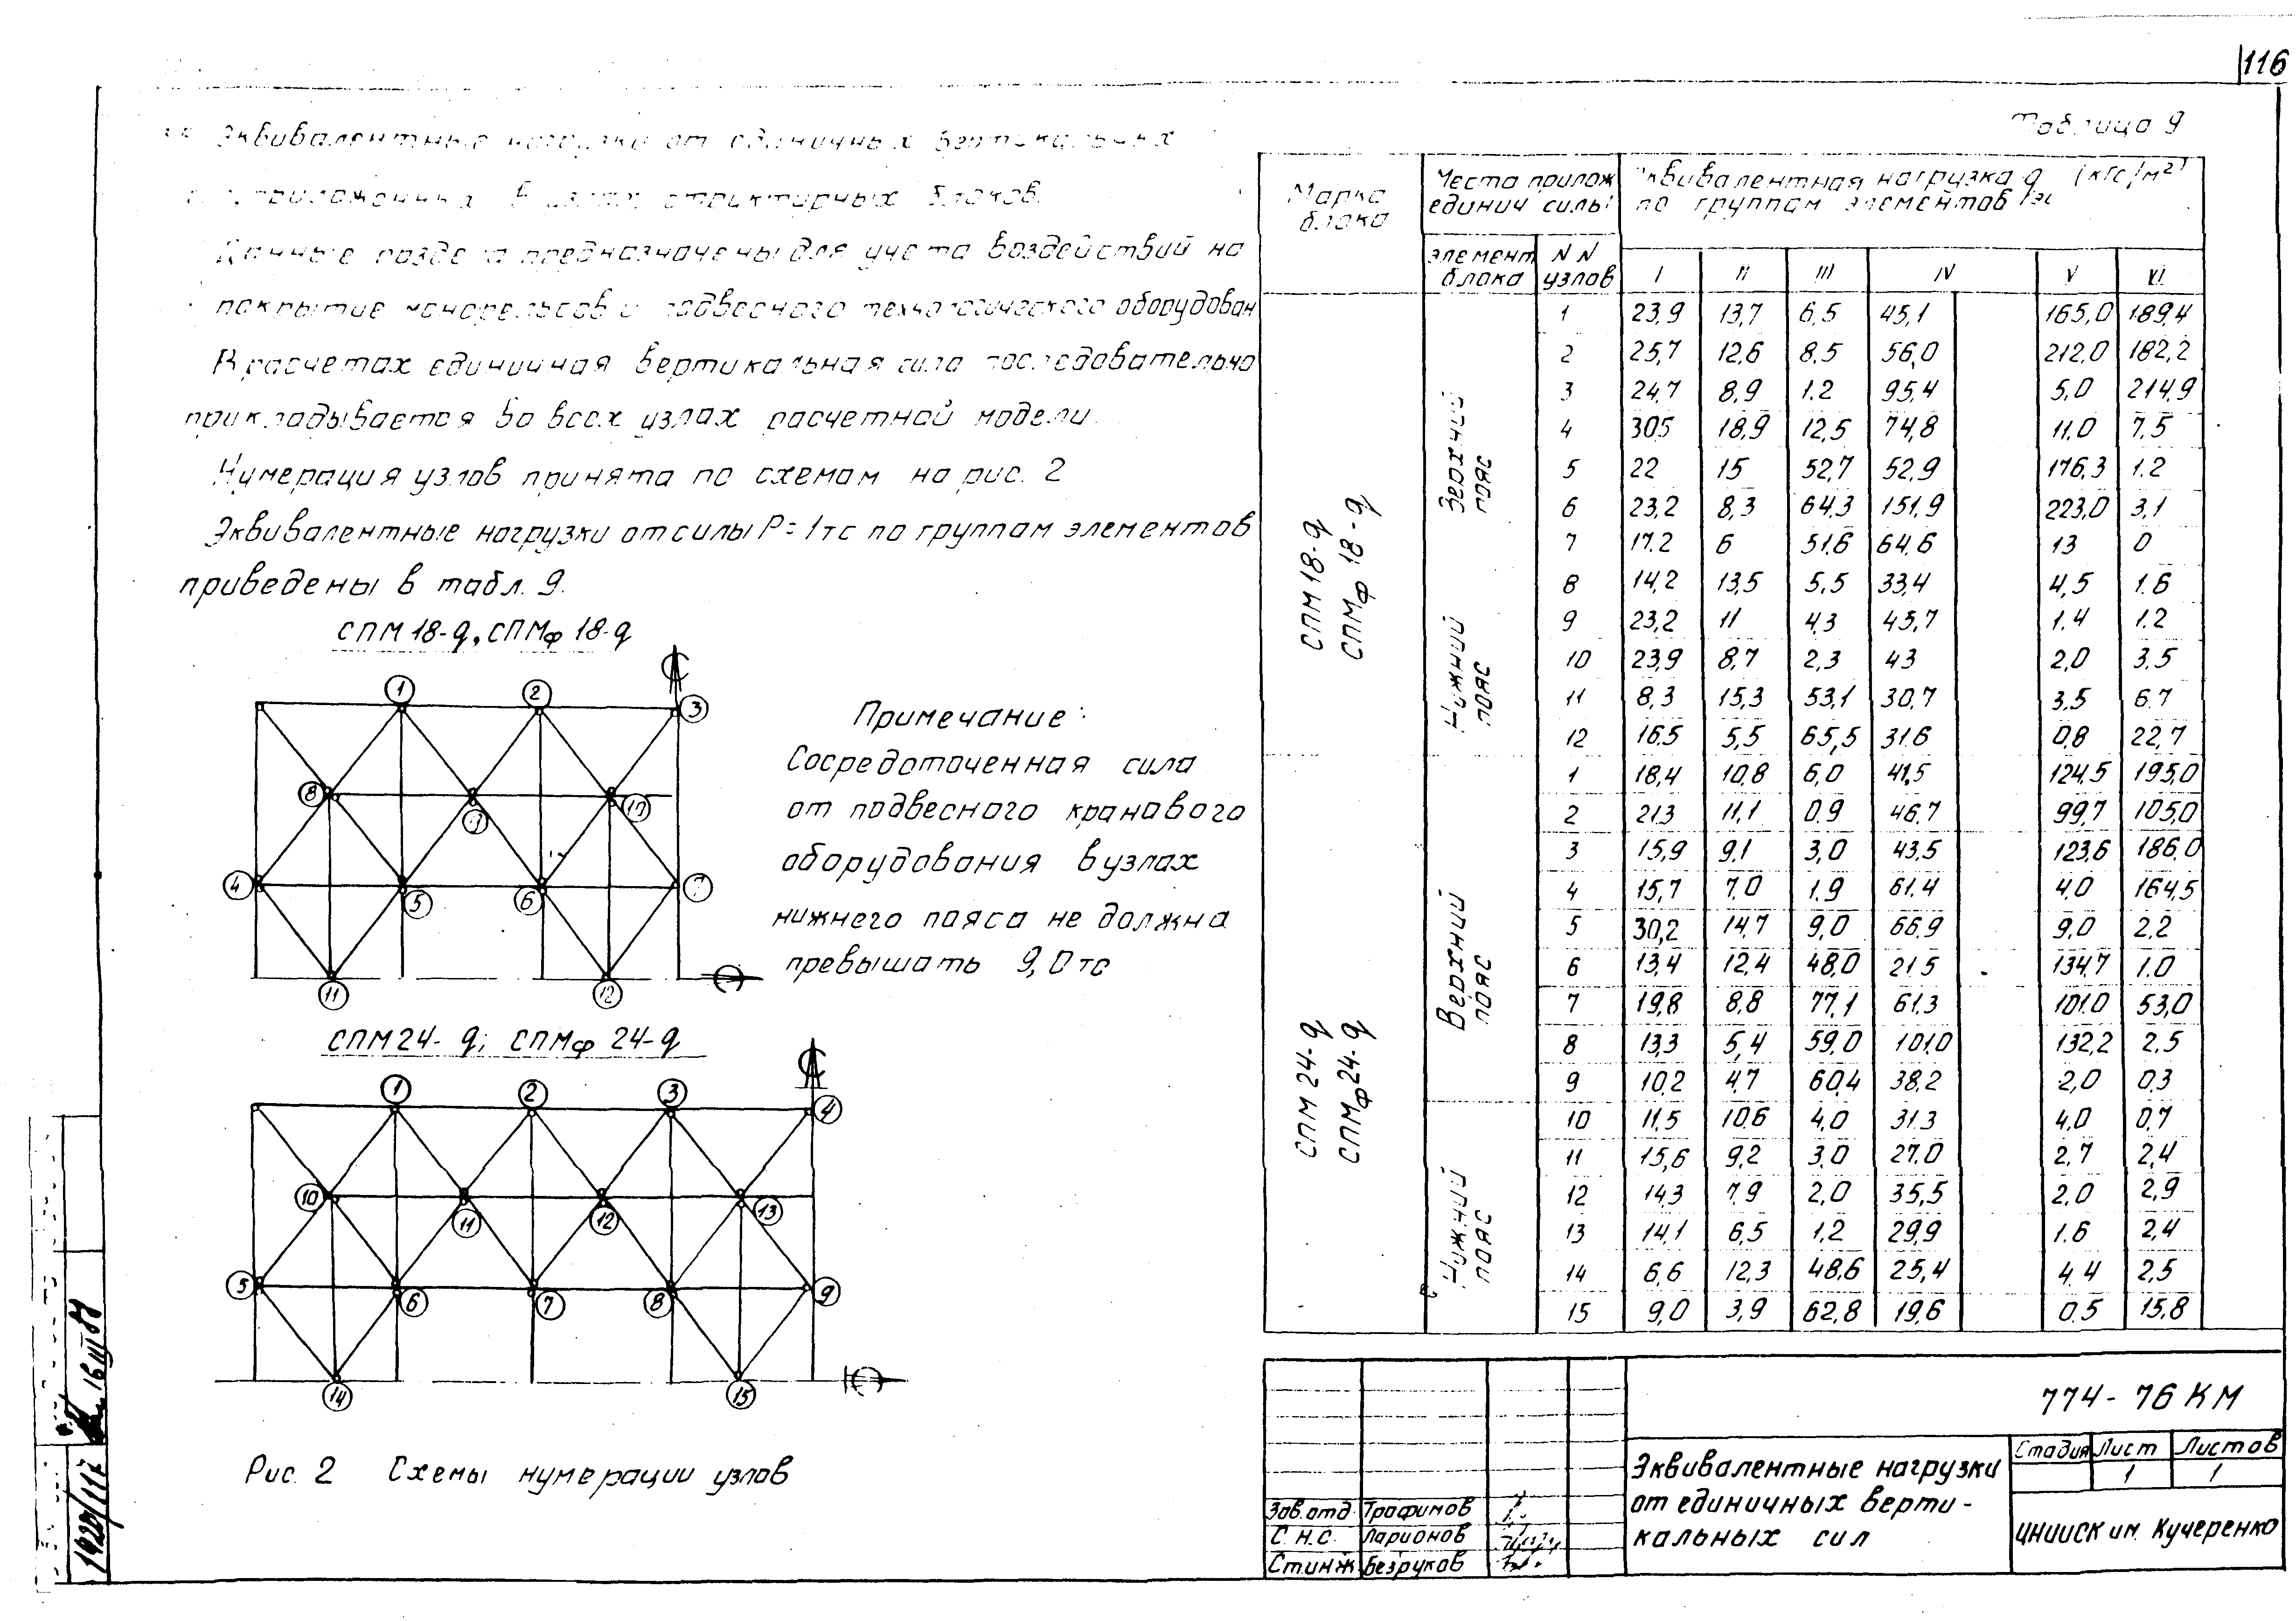 116
Эквивалентные нагрузки от единичных вертикальных
приложенных в узлах структурных блоков.
Данные раздела предназначены для учета воздействий на
покрытие монорельсов и подвесного технологического оборудован
В расчетах единичная вертикальная сила последовательно
прикладывается во всех узлах расчетной модели.
Нумерация узлов принята по схемам на рис. 2
Эквивалентные нагрузки от силы Р=1тс по группам элементов
приведены в табл. 9.
СПМ 18-q, СПМф 18-q
1 2 3
8 9 10
4 5 6 7
11 12
Примечание:
Сосредоточенная сила
от подвесного кранового
оборудования в узлах
нижнего пояса не должна
превышать 9,0 тс
СПМ 24-q; СПМф 24-q
1 2 3 4
10 11 12 13
5 6 7 8 9
14 15
Рис. 2 Схемы нумерации узлов
Таблица 9
Марка блока
Места прилож единич силы
Эквивалентная нагрузка q (кгс/м²)
по группам элементов
элемент блока
N N узлов
I II III IV V VI
СПМ 18-q
СПМф 18-q
Верхний пояс
1 23,9 13,7 6,5 45,1 165,0 189,4
2 25,7 12,6 8,5 56,0 212,0 182,2
3 24,7 8,9 1.2 95,4 5,0 214,9
4 305 18,9 12,5 74,8 11.0 7.5
5 22 15 52,7 52,9 176,3 1.2
6 23,2 8,3 64,3 151,9 223,0 3,1
7 17.2 6 51.6 64,6 13 0
Нижний пояс
8 14,2 13,5 5,5 33,4 4,5 1.6
9 23,2 11 4,3 45,7 1.4 1.2
10 23,9 8,7 2,3 43 2,0 3.5
11 8,3 15,3 53,1 30,7 3.5 6.7
12 16.5 5,5 65,5 31.6 0,8 22,7
СПМ 24-q
СПМф 24-q
Верхний пояс
1 18,4 10,8 6,0 41,5 124.5 195,0
2 21.3 11,1 0.9 46.7 99,7 105,0
3 15,9 9,1 3,0 43,5 123,6 186.0
4 15,7 7,0 1.9 61.4 4.0 164,5
5 30,2 14,7 9,0 66,9 9,0 2,2
6 13,4 12,4 48,0 21.5 134,7 1.0
7 19,8 8,8 77,1 61.3 101.0 53,0
8 13,3 5,4 59,0 101,0 132,2 2,5
9 10,2 4,7 60,4 38,2 2,0 0,3
Нижний пояс
10 11,5 10,6 4,0 31.3 4.0 0,7
11 15,6 9,2 3,0 27.0 2,7 2,4
12 14,3 7,9 2,0 35,5 2.0 2,9
13 14,1 6,5 1,2 29,9 1.6 2,4
14 6,6 12,3 48,6 25,4 4.4 2,5
15 9,0 3,9 62,8 19,6 0.5 15,8
774-76 КМ
Эквивалентные нагрузки
от единичных верти-
кальных сил
Стадия Лист Листов
1 1
ЦНИИСК им. Кучеренко
Зав.отд. Трофимов
С.Н.С. Ларионов
Ст.инж. Безруков